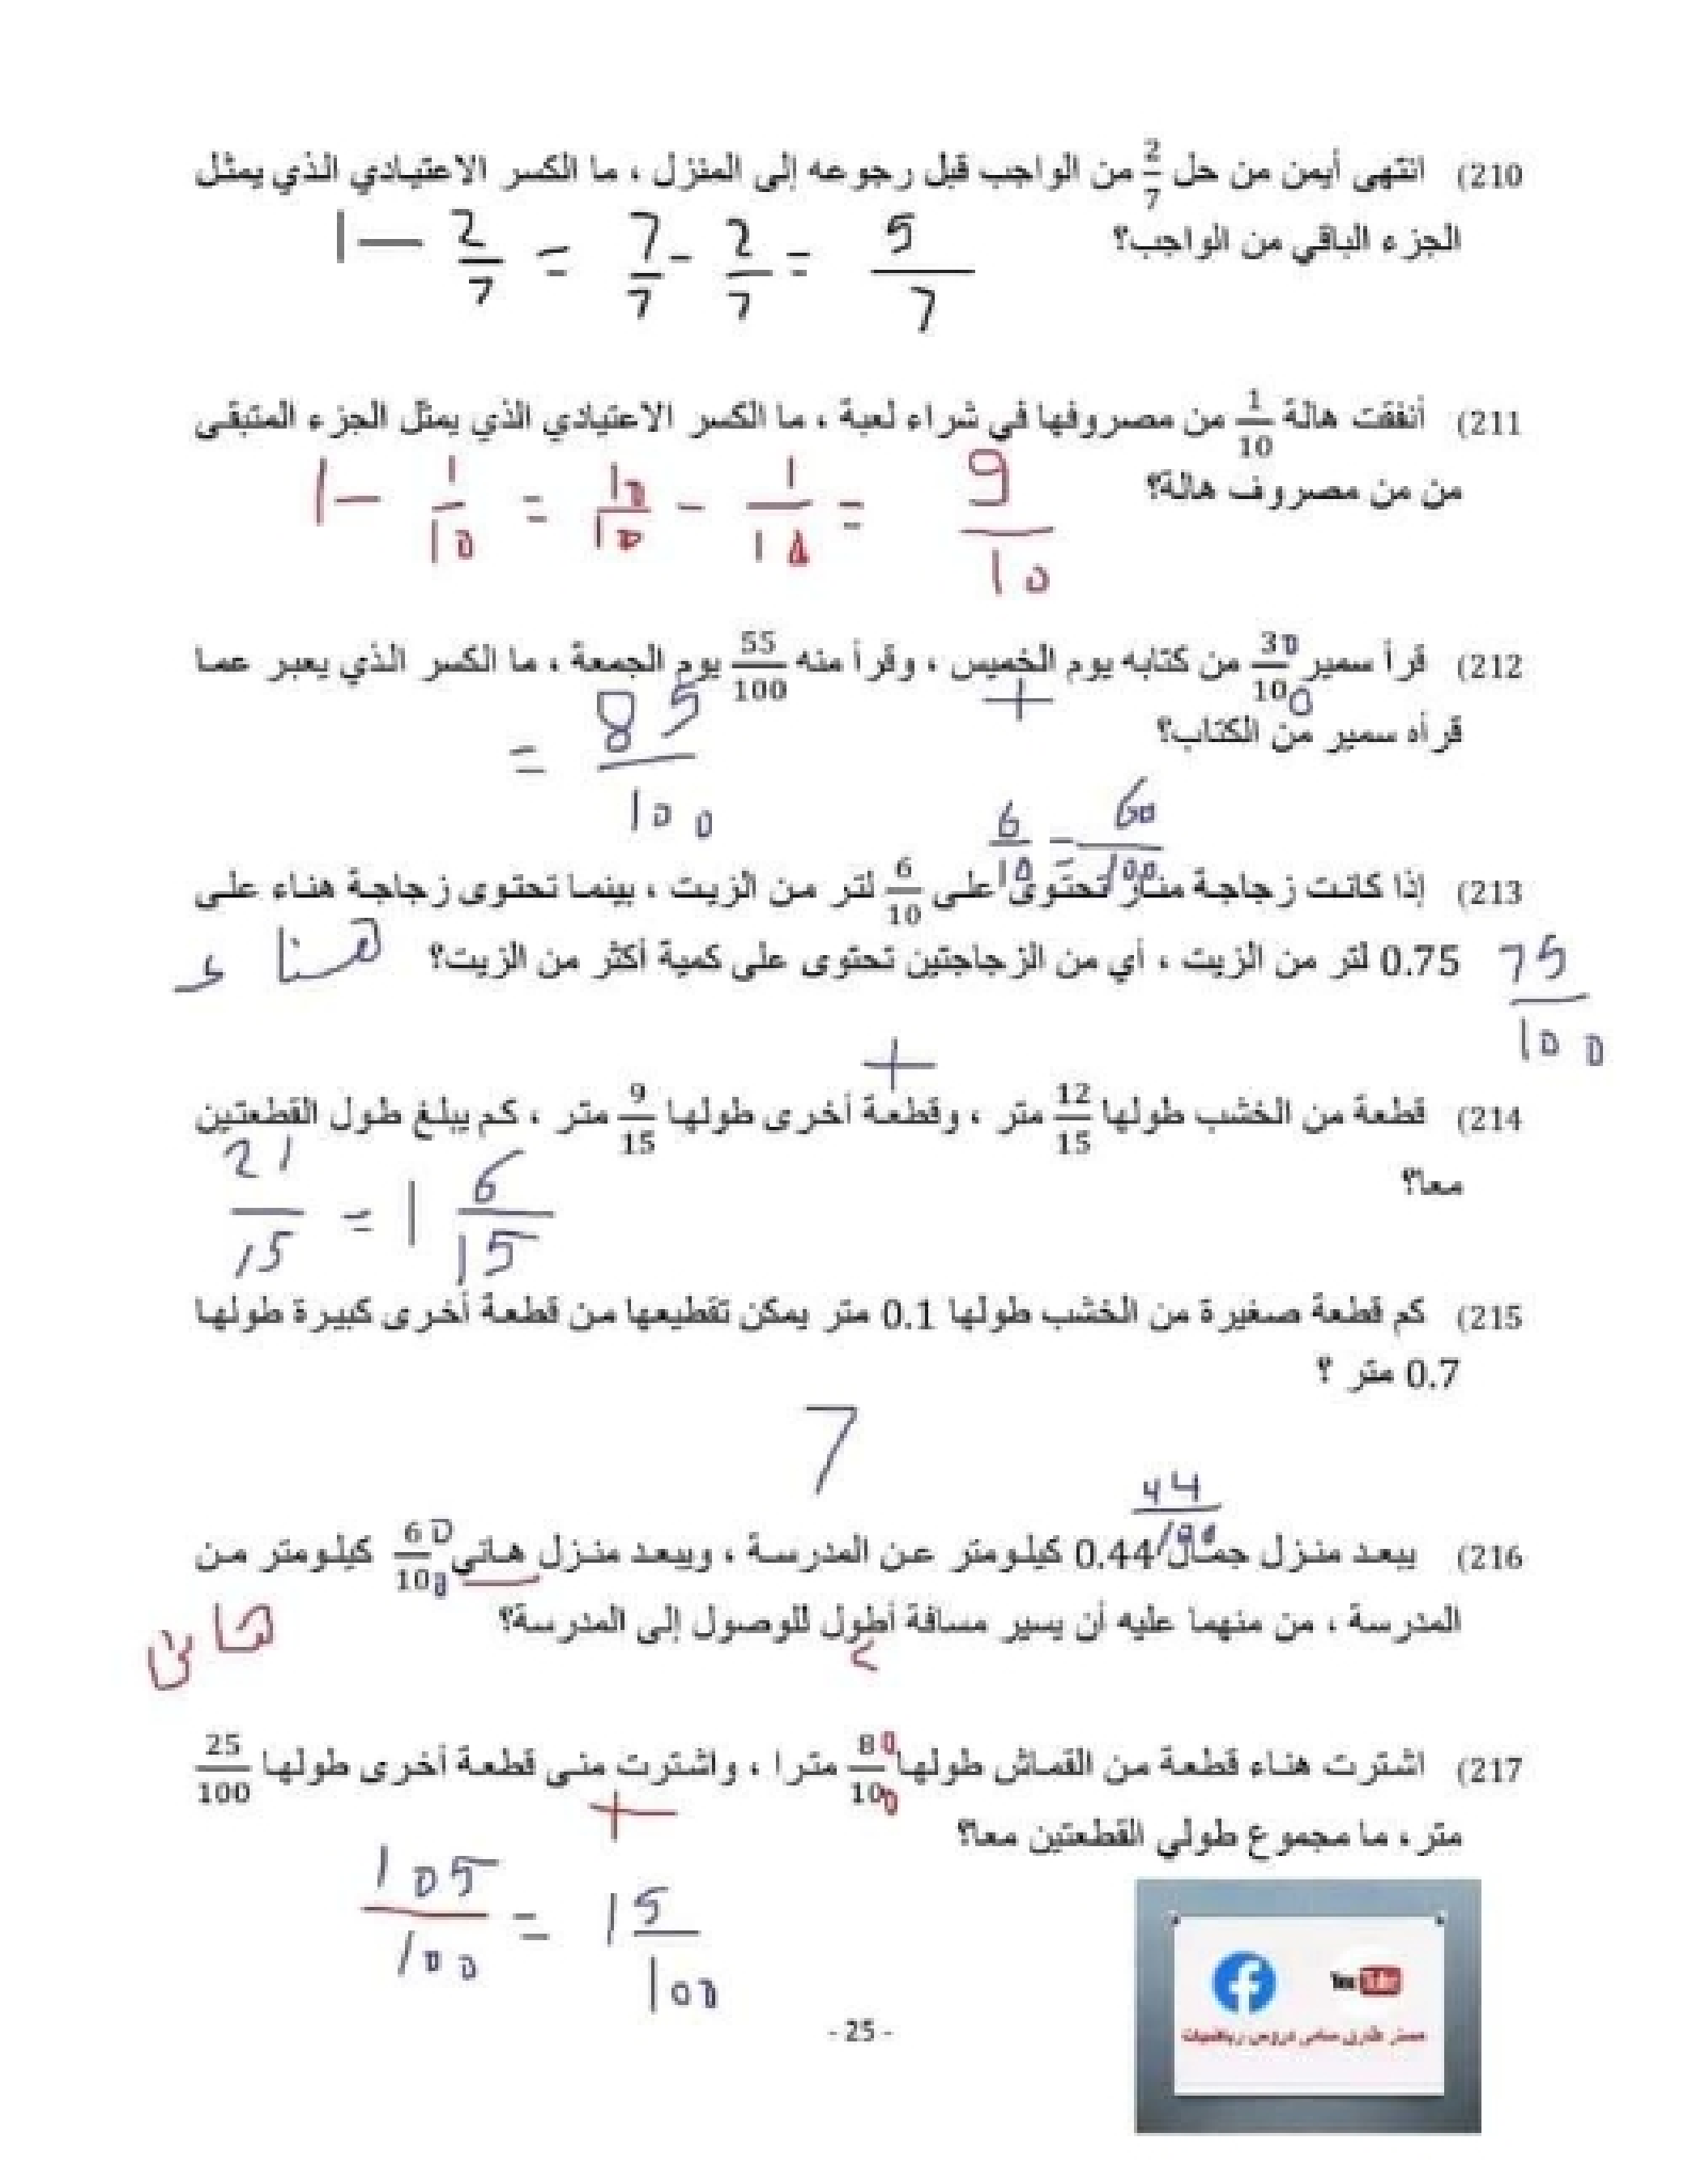 210) انتهى أيمن من حل 2/7 من الواجب قبل رجوعه إلى المنزل ، ما الكسر الاعتيادي الذي يمثل
الجزء الباقي من الواجب؟
1 - 2/7 = 7/7 - 2/7 = 5/7
211) أنفقت هالة 1/10 من مصروفها في شراء لعبة ، ما الكسر الاعتيادي الذي يمثل الجزء المتبقى
من من مصروف هالة؟
1 - 1/10 = 10/10 - 1/10 = 9/10
212) قرأ سمير 30/100 من كتابه يوم الخميس ، وقرأ منه 55/100 يوم الجمعة ، ما الكسر الذي يعبر عما
+
قرأه سمير من الكتاب؟
= 85/100
6/10 = 60/100
213) إذا كانت زجاجة منار تحتوى على 6/10 لتر من الزيت ، بينما تحتوى زجاجة هناء على
0.75 لتر من الزيت ، أي من الزجاجتين تحتوى على كمية أكثر من الزيت؟ هناء
75/100
+
214) قطعة من الخشب طولها 12/15 متر ، وقطعة أخرى طولها 9/15 متر ، كم يبلغ طول القطعتين
معا؟
21/15 = 1 6/15
215) كم قطعة صغيرة من الخشب طولها 0.1 متر يمكن تقطيعها من قطعة أخرى كبيرة طولها
0.7 متر ؟
7
44/100
216) يبعد منزل جمال 0.44 كيلومتر عن المدرسة ، ويبعد منزل هانى 60/100 كيلومتر من
المدرسة ، من منهما عليه أن يسير مسافة أطول للوصول إلى المدرسة؟
هانى
217) اشترت هناء قطعة من القماش طولها 80/100 مترا ، واشترت منى قطعة أخرى طولها 25/100
+
متر ، ما مجموع طولي القطعتين معا؟
105/100 = 1 5/100
- 25 -
YouTube
مستر طارق سامى دروس رياضيات